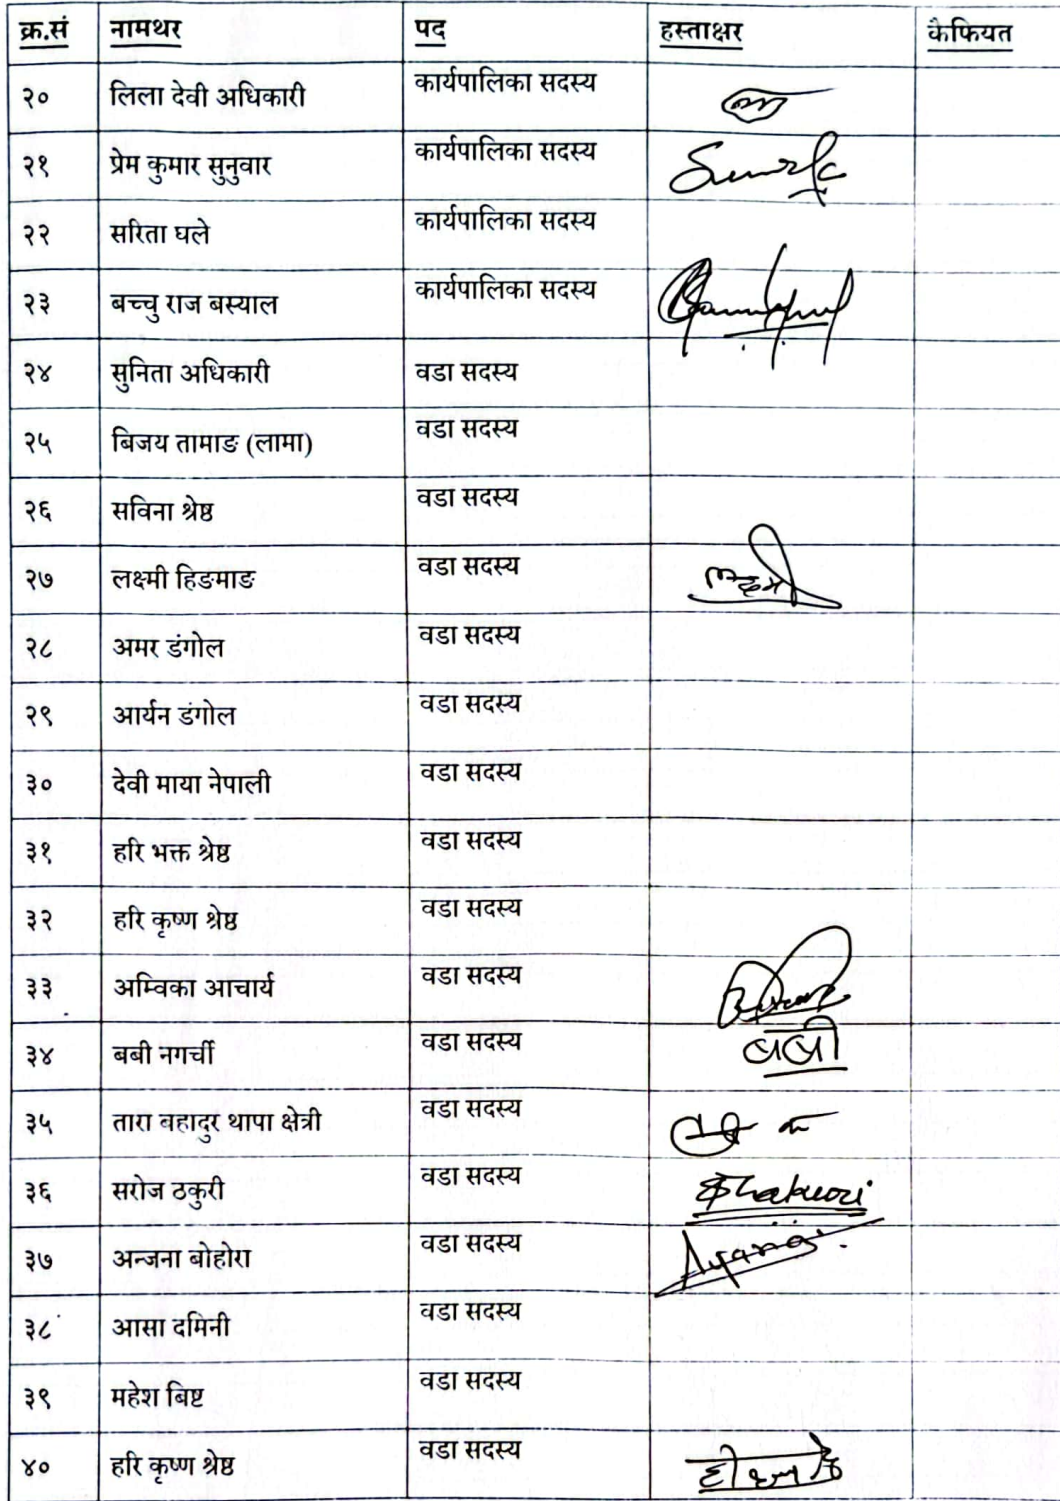 क्र.सं नामथर पद हस्ताक्षर कैफियत
२० लिला देवी अधिकारी कार्यपालिका सदस्य
२१ प्रेम कुमार सुनुवार कार्यपालिका सदस्य
२२ सरिता घले कार्यपालिका सदस्य
२३ बच्चु राज बस्याल कार्यपालिका सदस्य
२४ सुनिता अधिकारी वडा सदस्य
२५ बिजय तामाङ (लामा) वडा सदस्य
२६ सविना श्रेष्ठ वडा सदस्य
२७ लक्ष्मी हिङमाङ वडा सदस्य
२८ अमर डंगोल वडा सदस्य
२९ आर्यन डंगोल वडा सदस्य
३० देवी माया नेपाली वडा सदस्य
३१ हरि भक्त श्रेष्ठ वडा सदस्य
३२ हरि कृष्ण श्रेष्ठ वडा सदस्य
३३ अम्विका आचार्य वडा सदस्य
३४ बबी नगर्ची वडा सदस्य बबी
३५ तारा बहादुर थापा क्षेत्री वडा सदस्य
३६ सरोज ठकुरी वडा सदस्य
३७ अन्जना बोहोरा वडा सदस्य
३८ आसा दमिनी वडा सदस्य
३९ महेश बिष्ट वडा सदस्य
४० हरि कृष्ण श्रेष्ठ वडा सदस्य